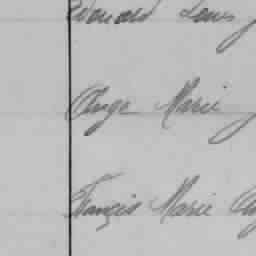 Edouard Louis
Ange Marie
François Marie